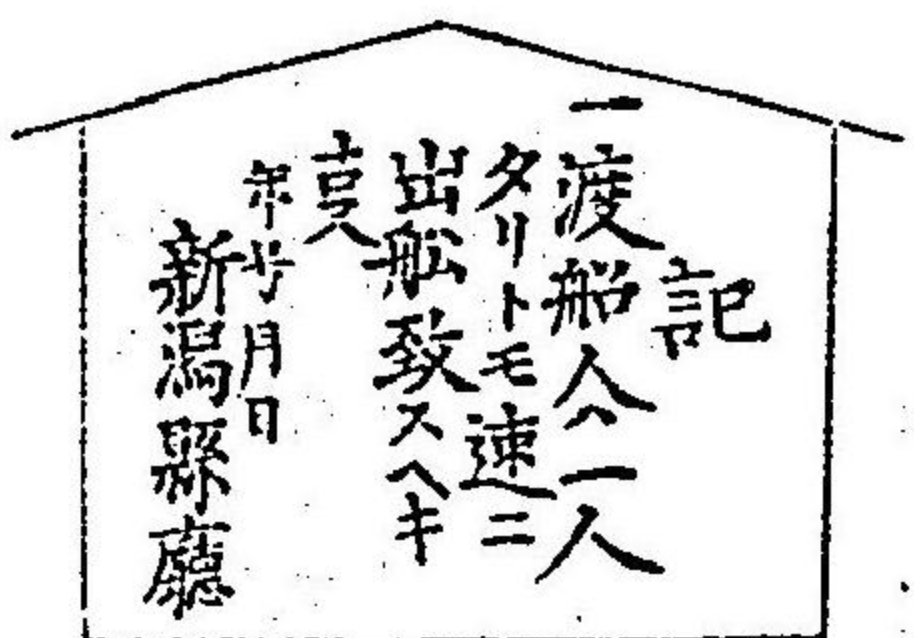 記
一渡船人ハ一人
タリトモ速ニ
出舩致スヘキ
叓
年号月日
新潟縣廳